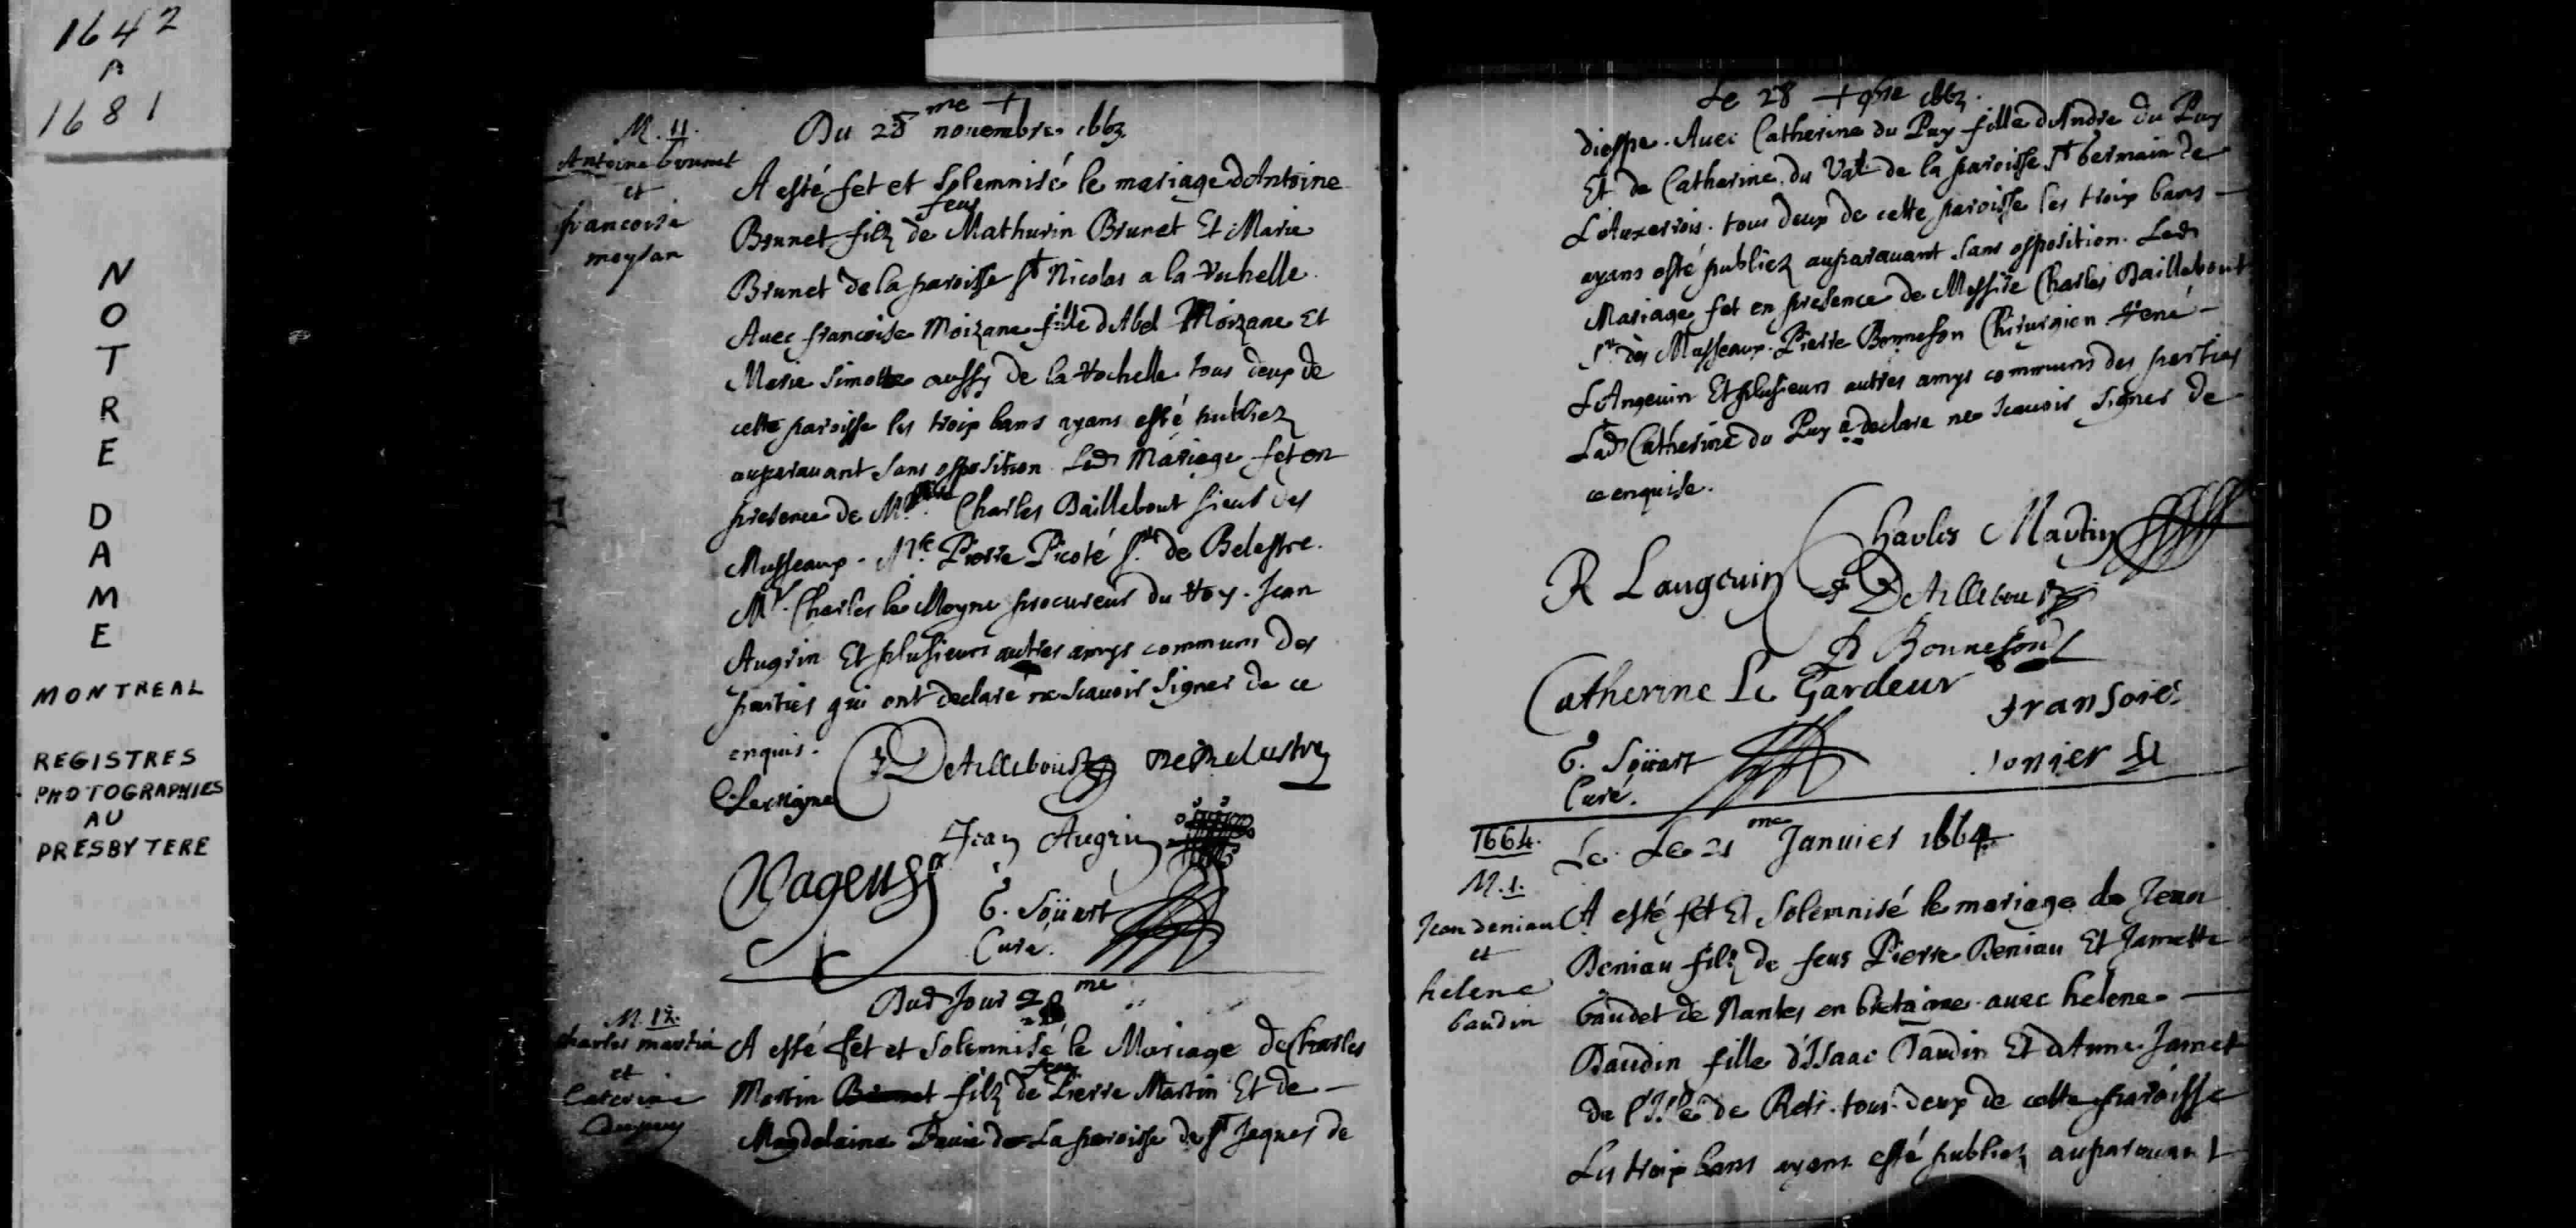 1642
A
1681
NOTRE
DAME
MONTREAL
REGISTRES
PHOTOGRAPHIES
AU
PRESBYTERE
M. 11.
Antoine brunet
et
francoise
moysan
Du 28me novembre 1663.
A esté fet et Solemnisé le mariage d'Antoine
Brunet filz de feu Mathurin Brunet Et Marie
Brunet de la paroisse St Nicolas a la Rochelle.
Avec francoise Moizane fille d'Abel Moizane Et
Marie Simotte aussy de la Rochelle tous deux de
cette paroisse les troix bans ayans esté publiez
auparavant sans opposition. Led Mariage fet en
presence de Charles Daillebout sieur des
Musseaux. Mre Pierre Picoté Sr de Belestre.
Mr Charles le Moyne procureur du Roy. Jean
Augrin Et plusieurs autres amys communs des
parties qui ont declaré ne Scavoir Signer de ce
enquis.
C Lemoyne
DeAillebout
Jean Augrin
G. Soüart
Curé.
Dud Jour 28me
M. 12.
charles martin
et
Caterine
dupuy
A esté fet et Solemnisé le Mariage de Charles
Martin Brunet filz de feu Pierre Martin Et de
Magdelaine de La paroisse de St Jaques de
Le 28 1663.
dieppe. Avec Catherine du Puy fille d'Andre du Puy
Et de Catherine du Val de la paroisse St Germain de
L'Auxerrois. tous deux de cette paroisse les troix bans
ayans esté publiez auparavant sans opposition. Led
Mariage fet en presence de Messire Charles Daillebout
Sr des Musseaux. Pierre Bonnefon Chirurgien. René
L'Angevin Et plusieurs autres amys communs des parties
Lad Catherine du Puy a declare ne scavoir signer de
ce enquise.
Charles Martin
R Langeuin
DeAillebout
P Bonnefond
Catherine Le Gardeur
fransoies
G. Soüart
Curé.
1664.
Le Le 21me Janvier 1664
M. 1.
Jean deniau
et
helene
baudin
A esté fet Et Solemnisé le mariage de Jean
Deniau filz de feus Pierre Deniau Et Jamette
Gaudet de Nantes en bretaine avec helene
Daudin fille d'Isaac Daudin Et d'Anne Jamet
de l'Isle de Rets. tous deux de cette paroisse
Les troix bans ayans esté publiez auparavant